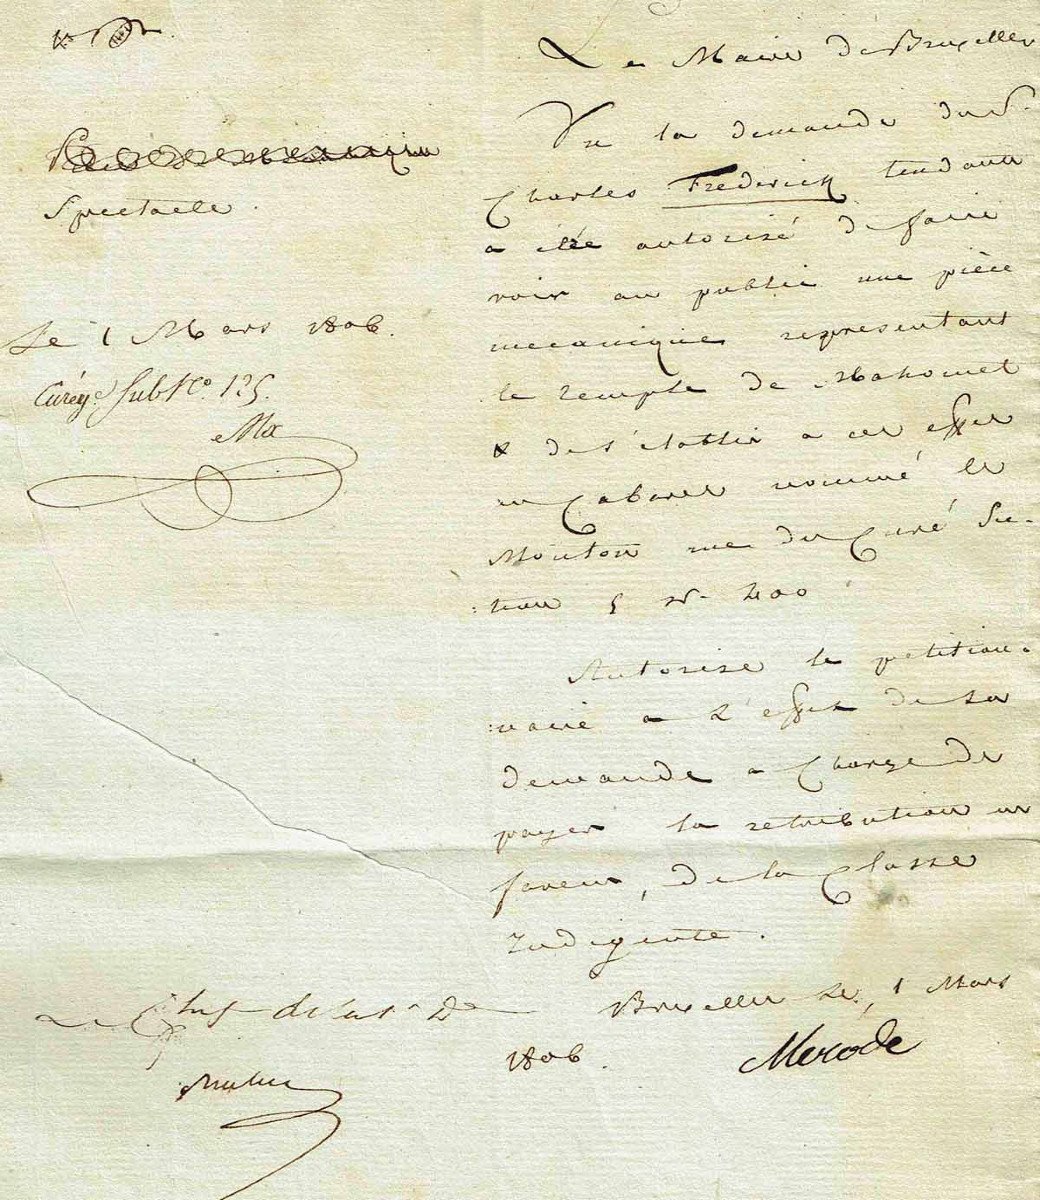 Spectacle.
Le 1 Mars 1806.
Enrég. sub N.o 125.
Le Maire de Bruxelles
Vu la demande du S.
Charles Frederick tendant
a être autorisé de faire
voir au public une pièce
mecanique representant
le temple de Mahomet
& de s'etablir a cet effet
au Cabaret nommé le
Mouton rue du Curé Sec-
:tion 5 N. 200
Autorise le petition-
:naire a l'effet de sa
demande a Charge de
payer la retribution en
faveur, de la Classe
Indigente.
Bruxelles le, 1 Mars
1806.
Merode
Le Chef de la